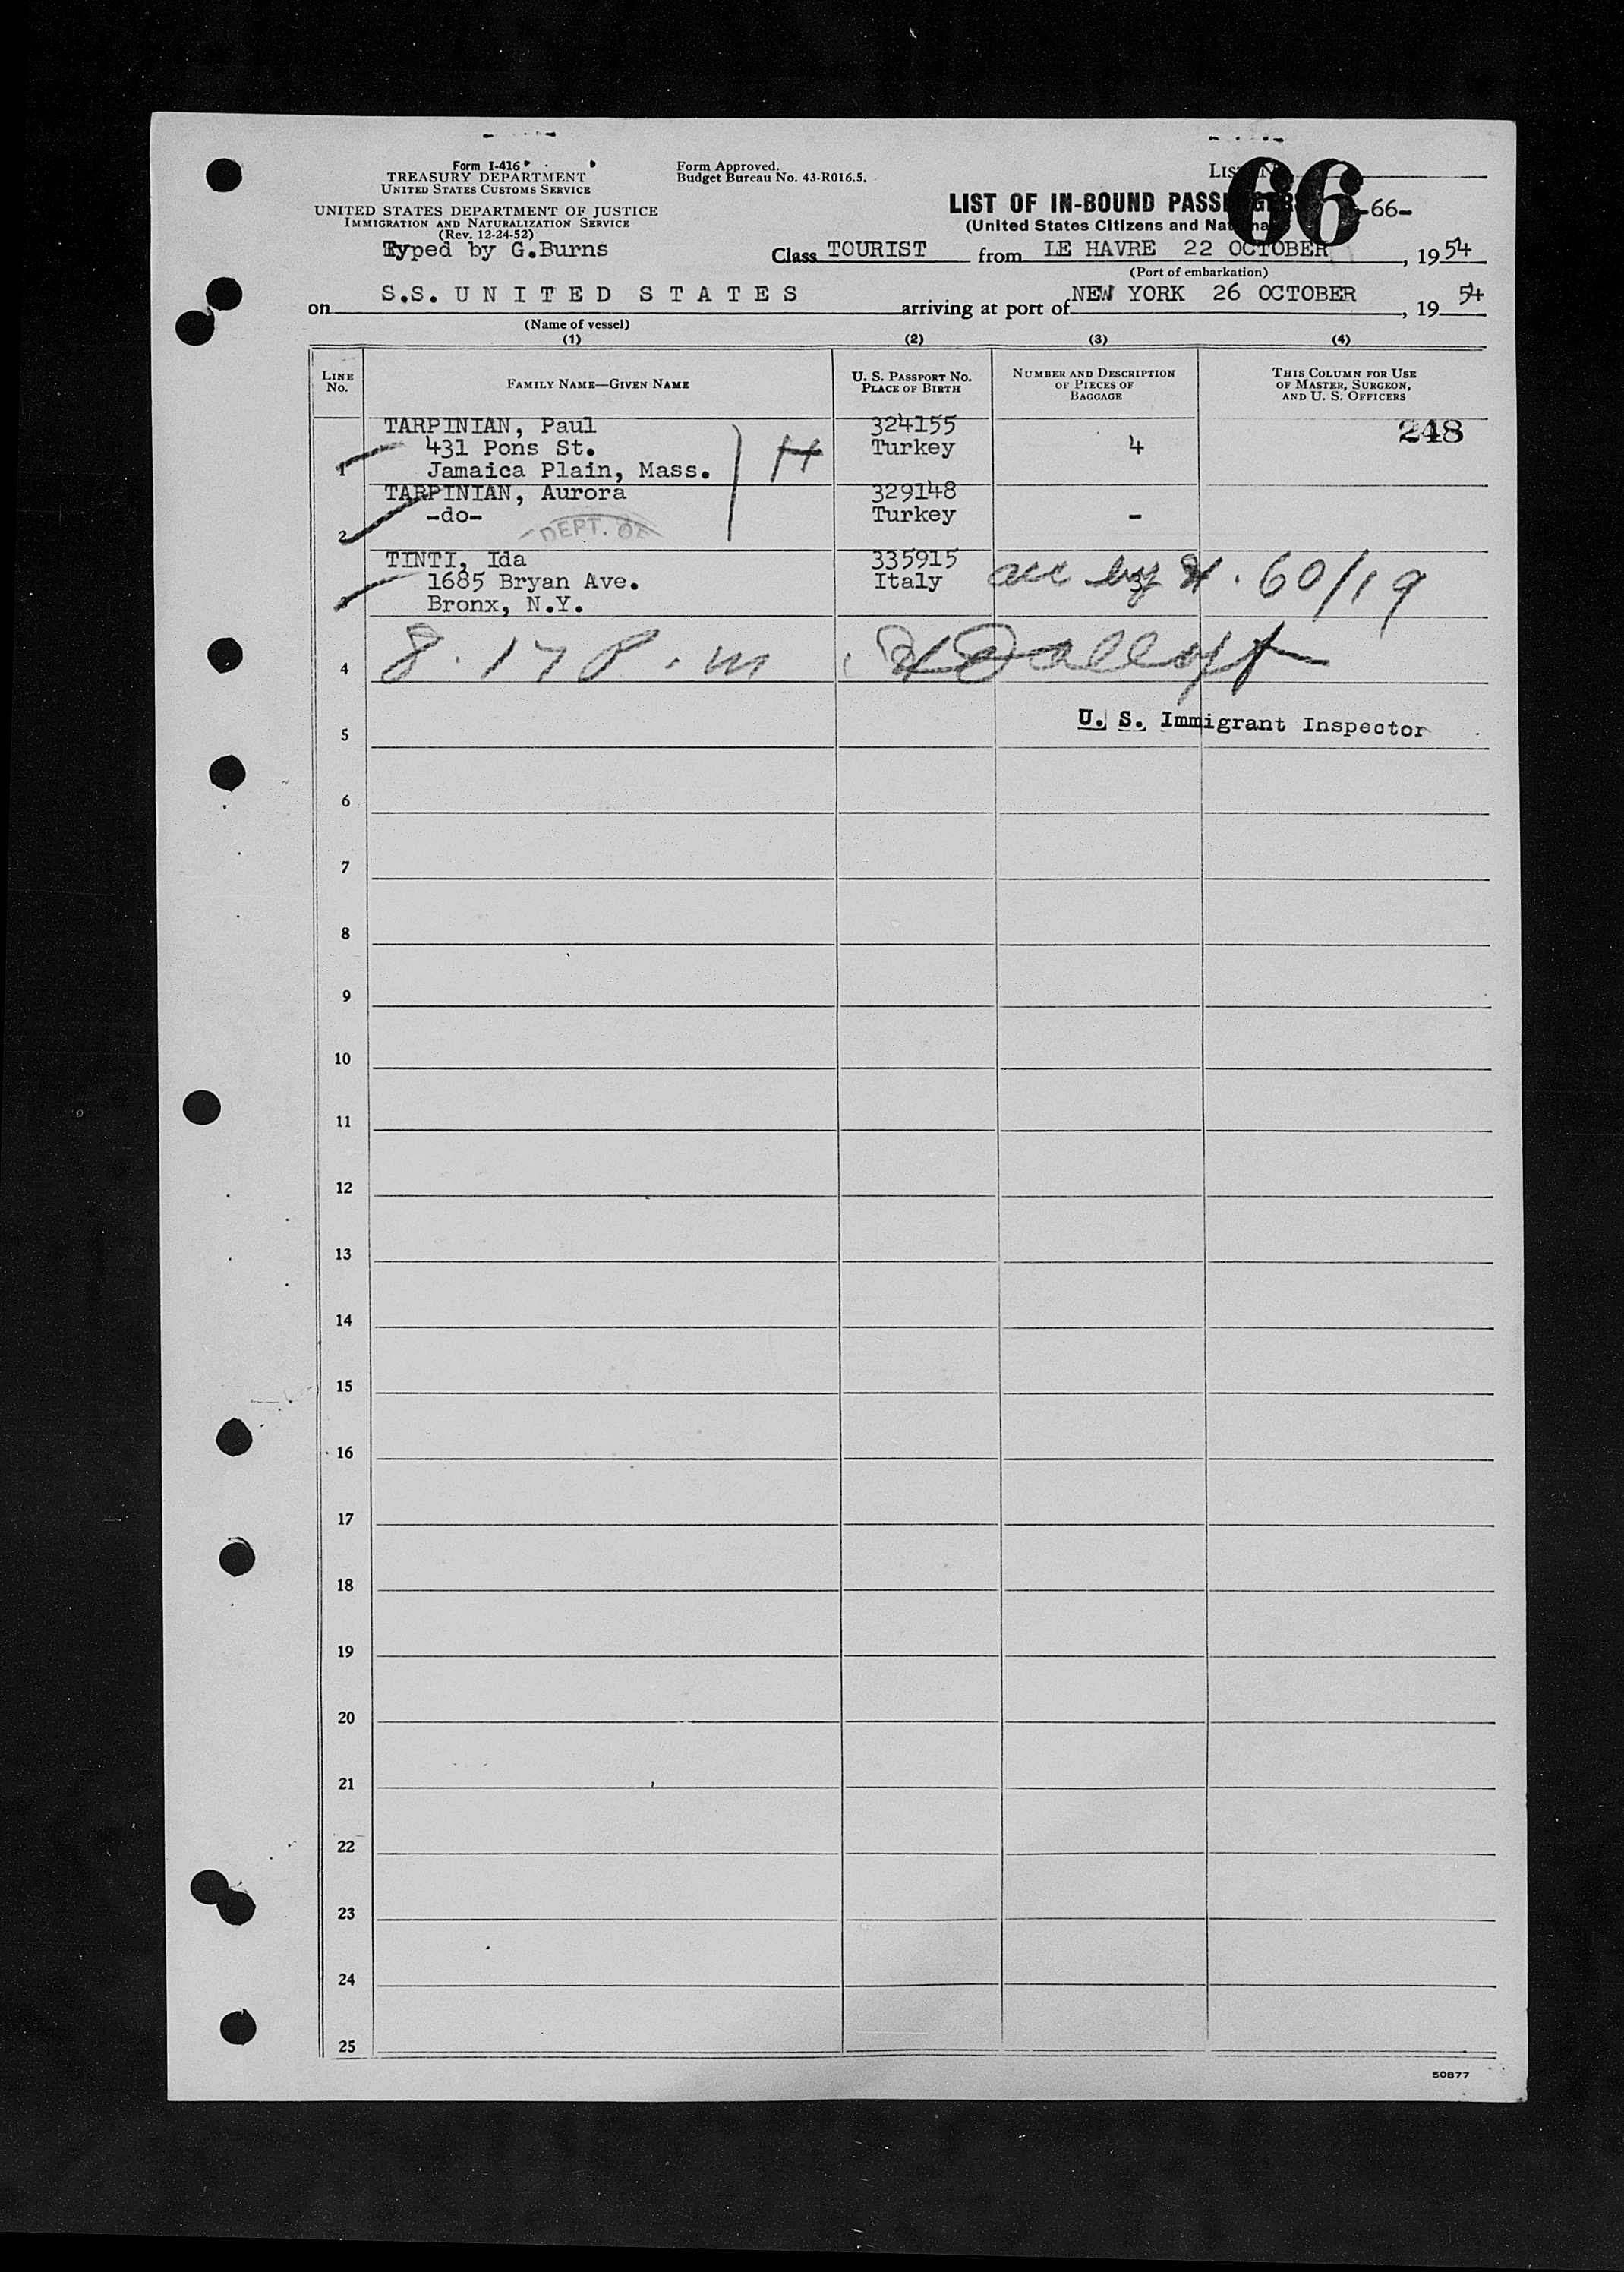 Form I-416
TREASURY DEPARTMENT
UNITED STATES CUSTOMS SERVICE
UNITED STATES DEPARTMENT OF JUSTICE
IMMIGRATION AND NATURALIZATION SERVICE
(Rev. 12-24-52)
Typed by G.Burns
Form Approved.
Budget Bureau No. 43-R016.5.
66
LIST OF IN-BOUND PASSENGERS -66-
(United States Citizens and Nationals)
Class TOURIST from LE HAVRE 22 OCTOBER, 1954
(Port of embarkation)
on S.S. UNITED STATES arriving at port of NEW YORK 26 OCTOBER, 1954
(Name of vessel)
(1) (2) (3) (4)
LINE No. FAMILY NAME—GIVEN NAME U. S. PASSPORT NO. PLACE OF BIRTH NUMBER AND DESCRIPTION OF PIECES OF BAGGAGE THIS COLUMN FOR USE OF MASTER, SURGEON, AND U. S. OFFICERS
TARPINIAN, Paul 324155 248
431 Pons St. H Turkey 4
1 Jamaica Plain, Mass.
TARPINIAN, Aurora 329148
-do- Turkey -
2 DEPT. OF
TINTI, Ida 335915
1685 Bryan Ave. Italy 3 acc by 60/19
Bronx, N.Y.
4 8.17 P.m
U. S. Immigrant Inspector
5
6
7
8
9
10
11
12
13
14
15
16
17
18
19
20
21
22
23
24
25
50877